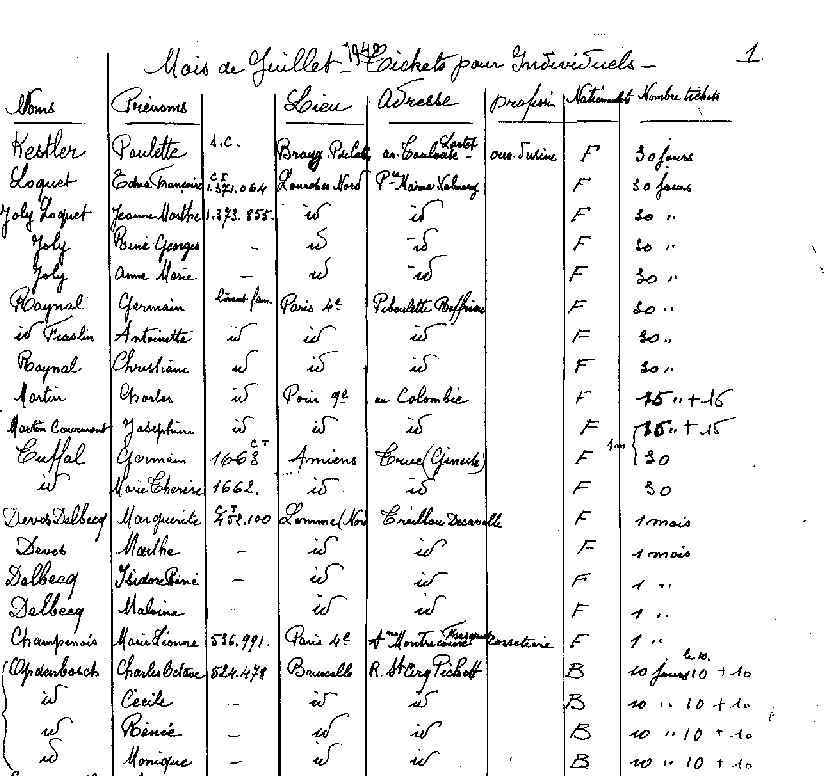 Mois de Juillet 1940 Tickets pour Individuels - 1
Noms Prénoms Lieu Adresse profession Nationalité Nombre tickets
Kestler Paulette S.C. F 30 jours
Loquet Edna Françoise C.I 1.371.064 Lourches Nord F 30 jours
Joly Loquet Jeanne Marthe 1.373.855. id id F 30 "
Joly René Georges - id id F 30 "
Joly Anne Marie - id id F 30 "
Raynal Germain livret fam. Paris 4e F 30 "
id Antoinette id id id F 30 "
Raynal Christiane id id id F 30 "
Martin Charles id 9e au Colombié F 15 " + 15
Martin Joséphine id id id F 15 " + 15
Cuffal Germain 1663 C.I Amiens F 30
id Marie Thérèse 1662. id id F 30
Devos Delbecq Marguerite C.I 452.100 Lomme (Nord F 1 mois
Devos Marthe - id id F 1 mois
Delbecq Isidore René - id id F 1 "
Delbecq Malvina - id id F 1 "
Champenois Marie Léonne 536.991. Paris 4e corsetière F 1 "
Opdenbosch Charles Octave 524.478 Bruxelle R. St Cerq Pichott B 10 jours 10 + 10
id Cécile - id id B 10 " 10 + 10
id Rénée - id id B 10 " 10 + 10
id Monique - id id B 10 " 10 + 10